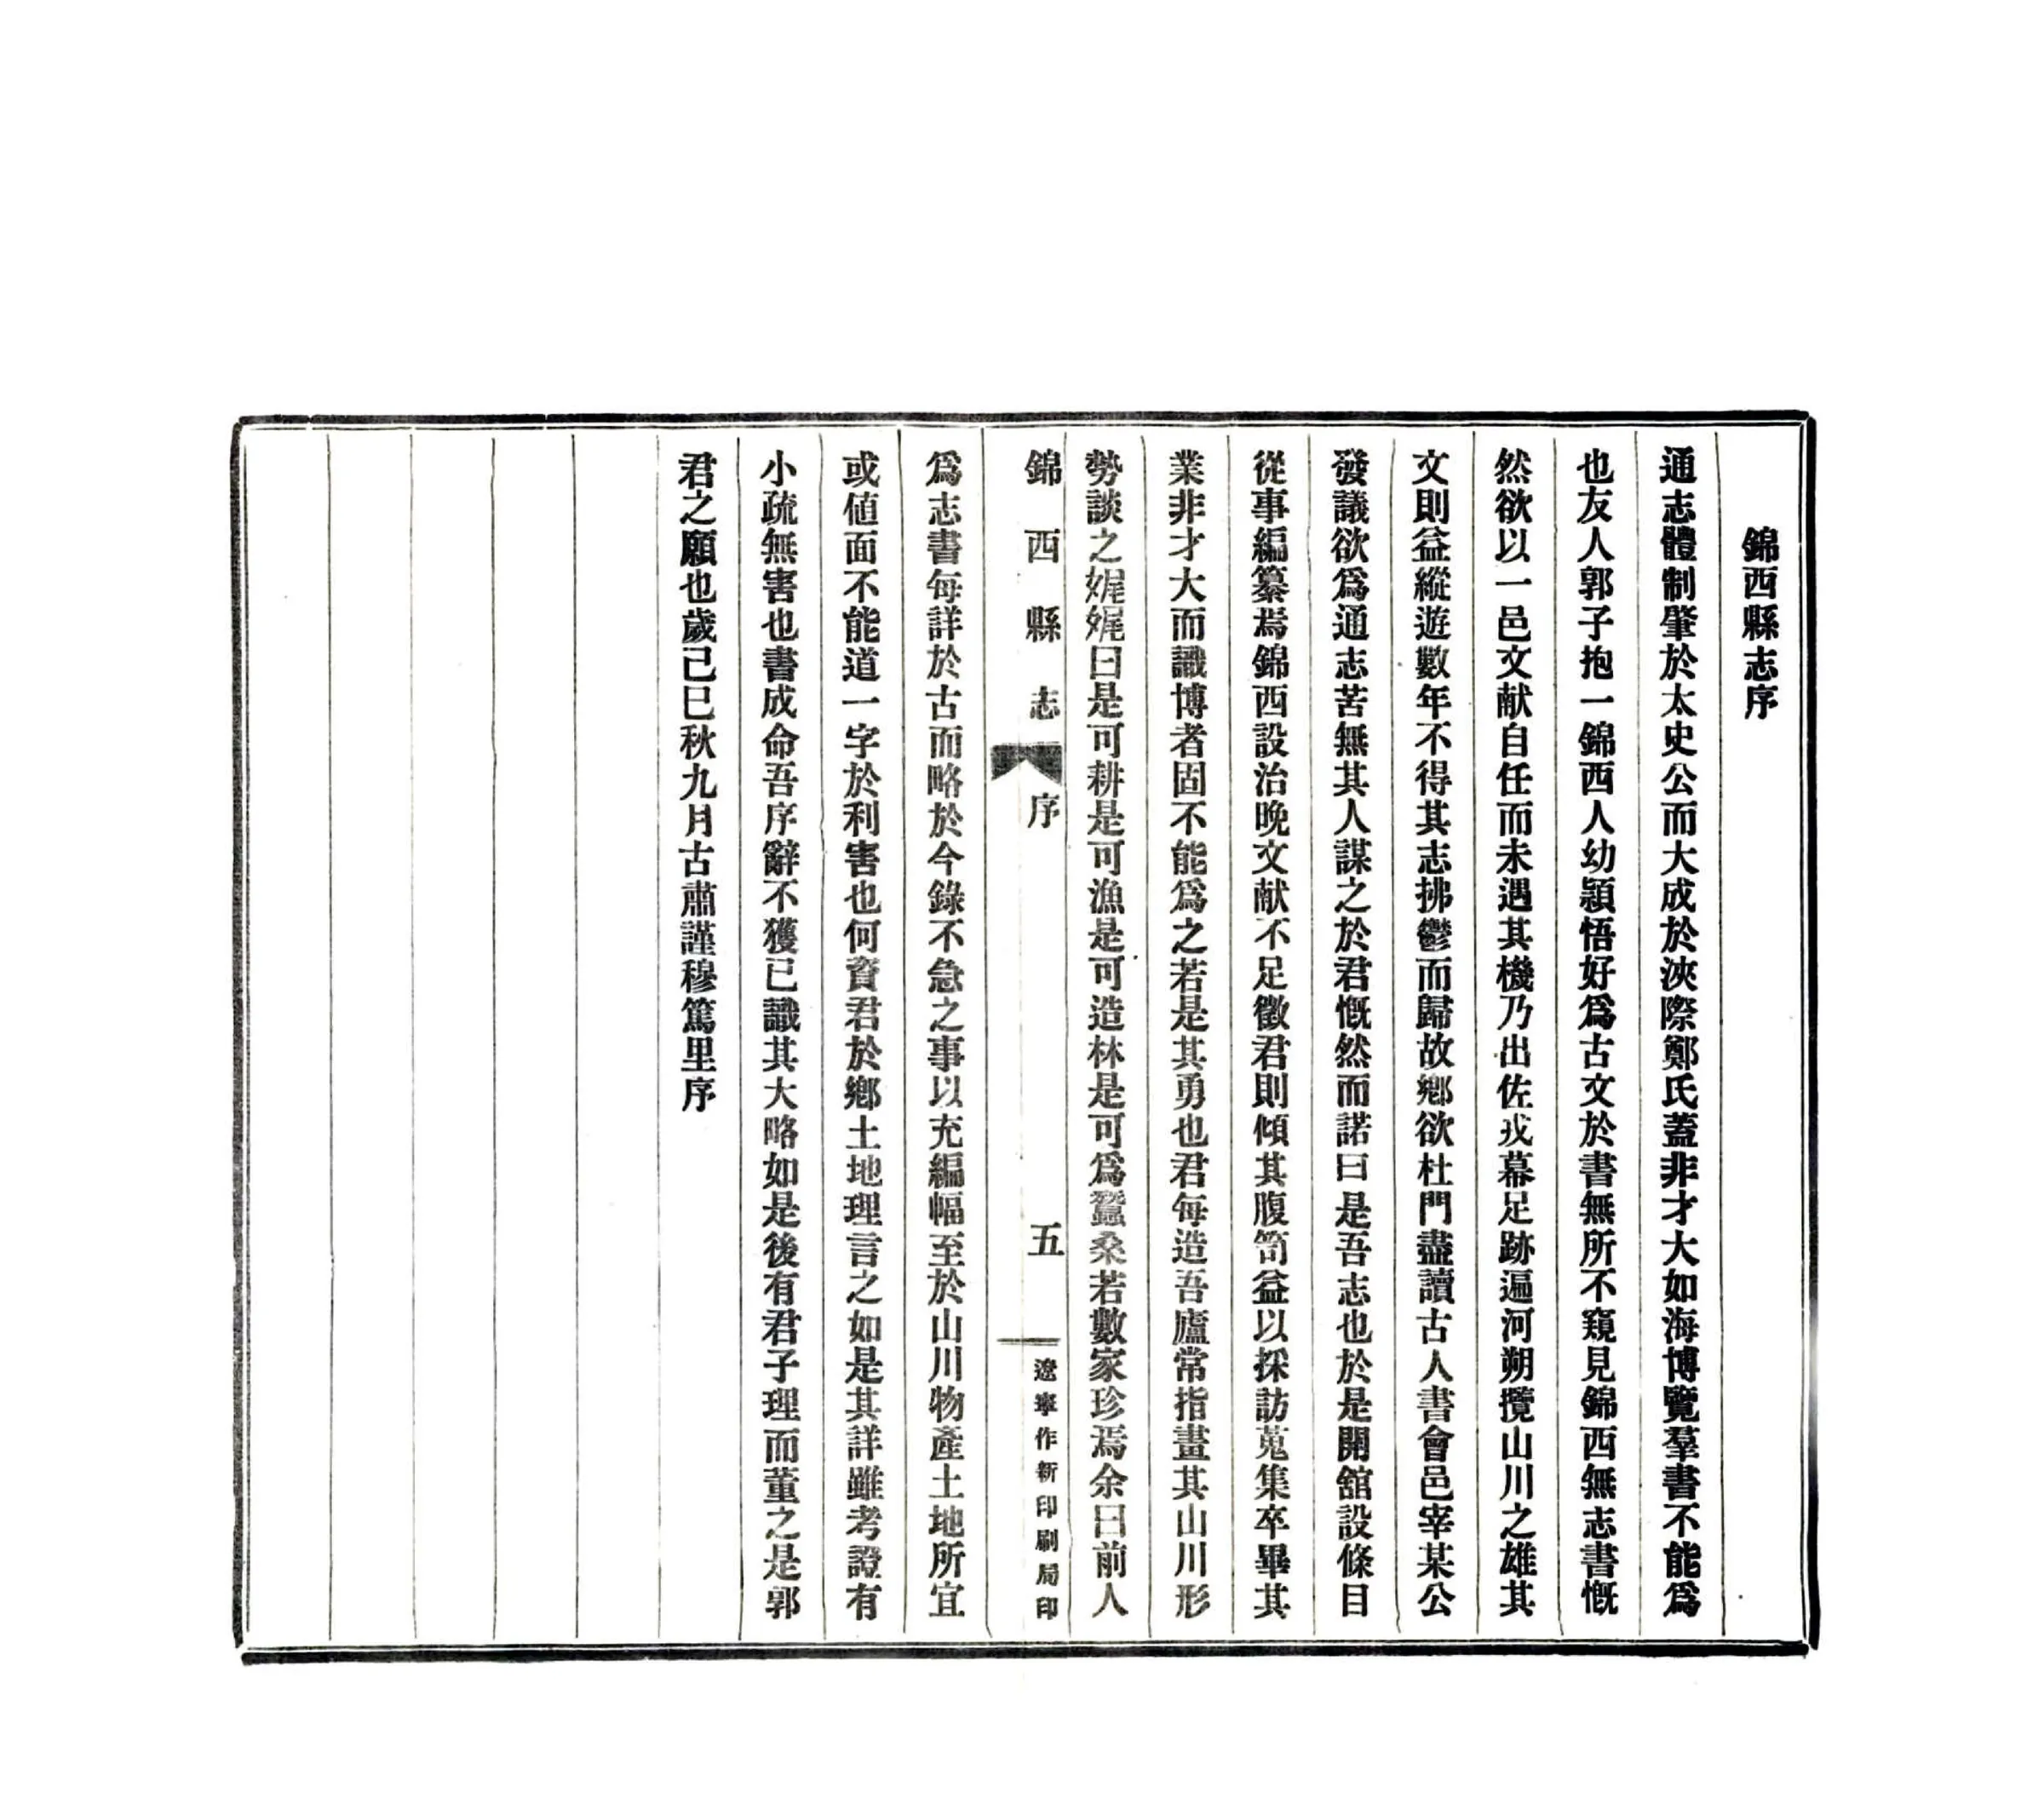 錦西縣志序
通志體制肇於太史公而大成於浹際鄭氏蓋非才大如海博覽羣書不能爲
也友人郭子抱一錦西人幼穎悟好爲古文於書無所不窺見錦西無志書慨
然欲以一邑文献自任而未遇其機乃出佐戎幕足跡遍河朔攬山川之雄其
文則益縱遊數年不得其志拂鬱而歸故鄉欲杜門盡讀古人書會邑宰某公
發議欲爲通志苦無其人謀之於君慨然而諾曰是吾志也於是開舘設條目
從事編纂焉錦西設治晚文献不足徵君則傾其腹笥益以採訪蒐集卒畢其
業非才大而識博者固不能爲之若是其勇也君每造吾廬常指畫其山川形
勢談之娓娓曰是可耕是可漁是可造林是可爲蠶桑若數家珍焉余曰前人
錦西縣志 序 五 遼寧作新印刷局印
爲志書每詳於古而略於今錄不急之事以充編幅至於山川物產土地所宜
或値面不能道一字於利害也何資君於鄉土地理言之如是其詳雖考證有
小疏無害也書成命吾序辭不獲已識其大略如是後有君子理而董之是郭
君之願也歲己巳秋九月古肅謹穆篤里序